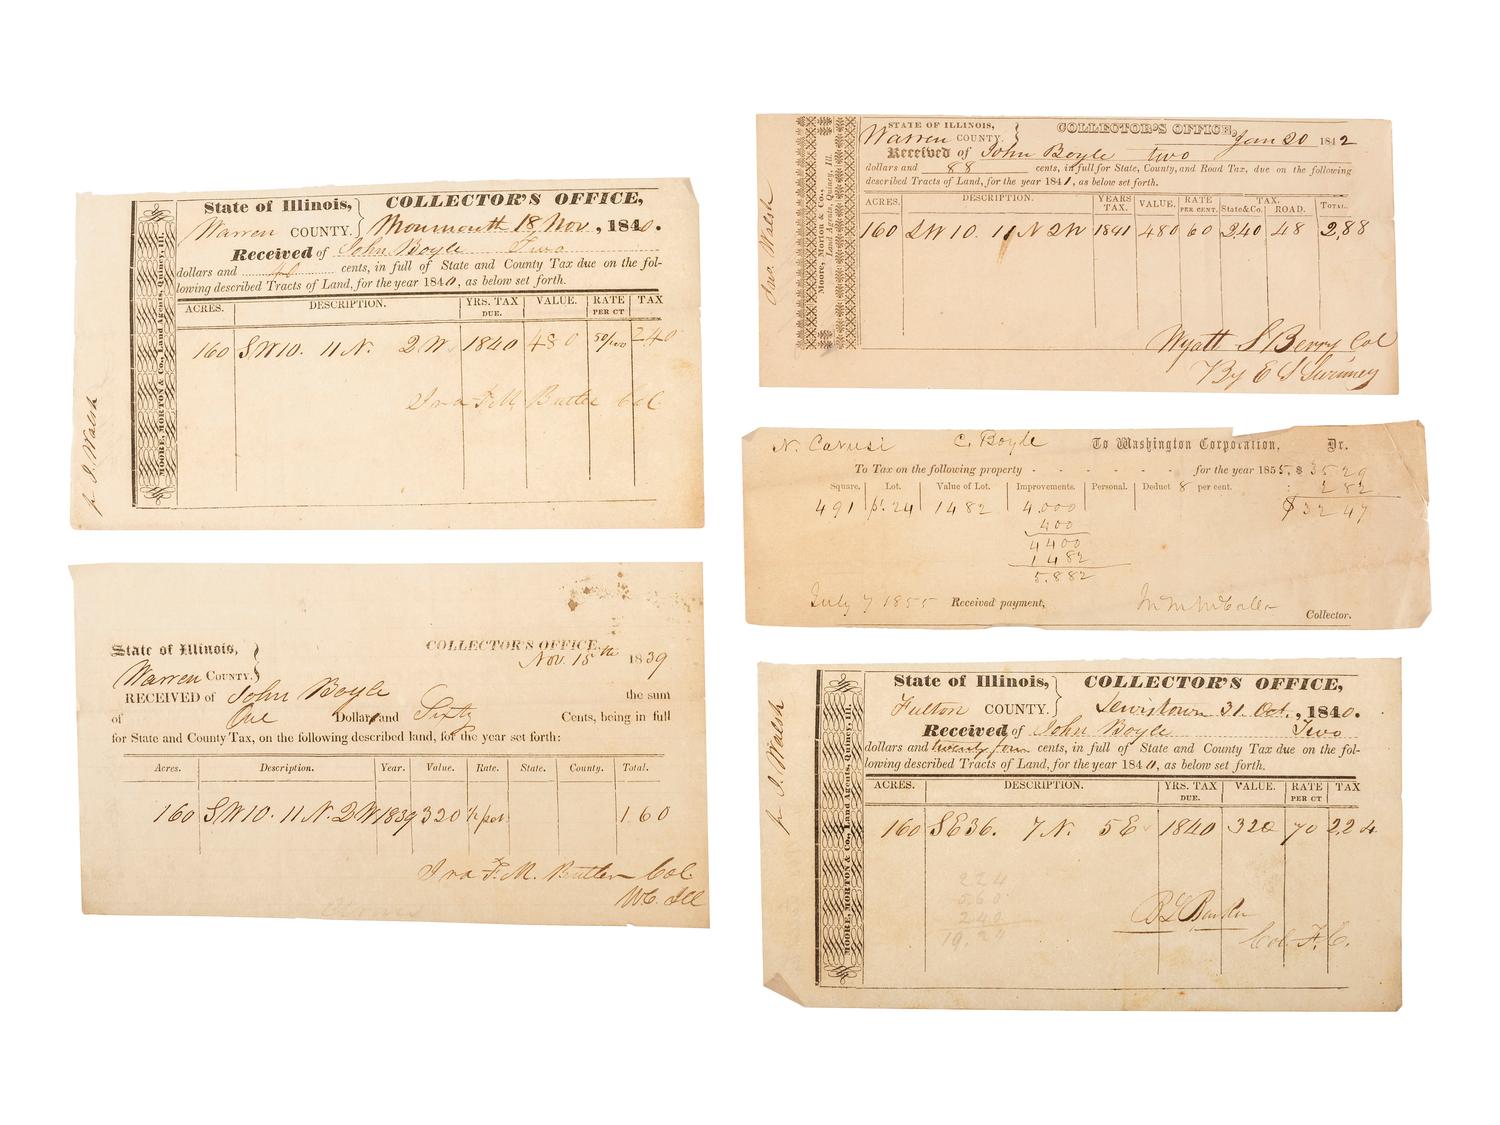 State of Illinois, COLLECTOR'S OFFICE,
Warren COUNTY. Monmouth 18 Nov, 1840.
Received of John Boyle Two
dollars and 40 cents, in full of State and County Tax due on the fol-
lowing described Tracts of Land, for the year 1840, as below set forth.
ACRES. DESCRIPTION. YRS. TAX DUE. VALUE. RATE PER CT TAX
160 SW10. 11 N. 2 W. 1840 480 50/100 240
Ira F. M. Butler Col
MOORE, MORTON & Co., Land Agents, Quincy, Ill.
pr J. Walsh
State of Illinois, COLLECTOR'S OFFICE,
Nov. 15th 1839
Warren COUNTY.
RECEIVED of John Boyle the sum
of One Dollar and Sixty Cents, being in full
for State and County Tax, on the following described land, for the year set forth:
Acres. Description. Year. Value. Rate. State. County. Total.
160 SW10. 11 N. 2 W 1839 320 1 60
Ira F. M. Butler Col.
WC. Ill
STATE OF ILLINOIS, COLLECTOR'S OFFICE,
Warren COUNTY. Jan 20 1842
Received of John Boyle two
dollars and 88 cents, in full for State, County, and Road Tax, due on the following
described Tracts of Land, for the year 1841, as below set forth.
ACRES. DESCRIPTION. YEARS TAX. VALUE. RATE PER CENT. TAX. State&Co. ROAD. TOTAL.
160 SW 10. 11 N 2 W 1841 480 60 2,40 48 2,88
Wyatt S Berry Col
By E S Swinney
Moore, Morton & Co.,
Land Agents, Quincy, Ill.
Ira Walsh
N. Carusi C. Boyle To Washington Corporation, Dr.
To Tax on the following property - - - - - - for the year 1855. $ 35 29
Square. Lot. Value of Lot. Improvements. Personal. Deduct 8 per cent. 2 82
491 pt. 24 1482 4.000 $32 47
400
4400
1482
5.882
July 7 1855 Received payment,
Collector.
State of Illinois, COLLECTOR'S OFFICE,
Fulton COUNTY. Lewistown 31. Oct., 1840.
Received of John Boyle Two
dollars and twenty four cents, in full of State and County Tax due on the fol-
lowing described Tracts of Land, for the year 1840, as below set forth.
ACRES. DESCRIPTION. YRS. TAX DUE. VALUE. RATE PER CT TAX
160 SE36. 7 N. 5 E 1840 320 70 2 24
224
240
19.24
Col. F. C.
MOORE, MORTON & Co., Land Agents, Quincy, Ill.
pr J. Walsh